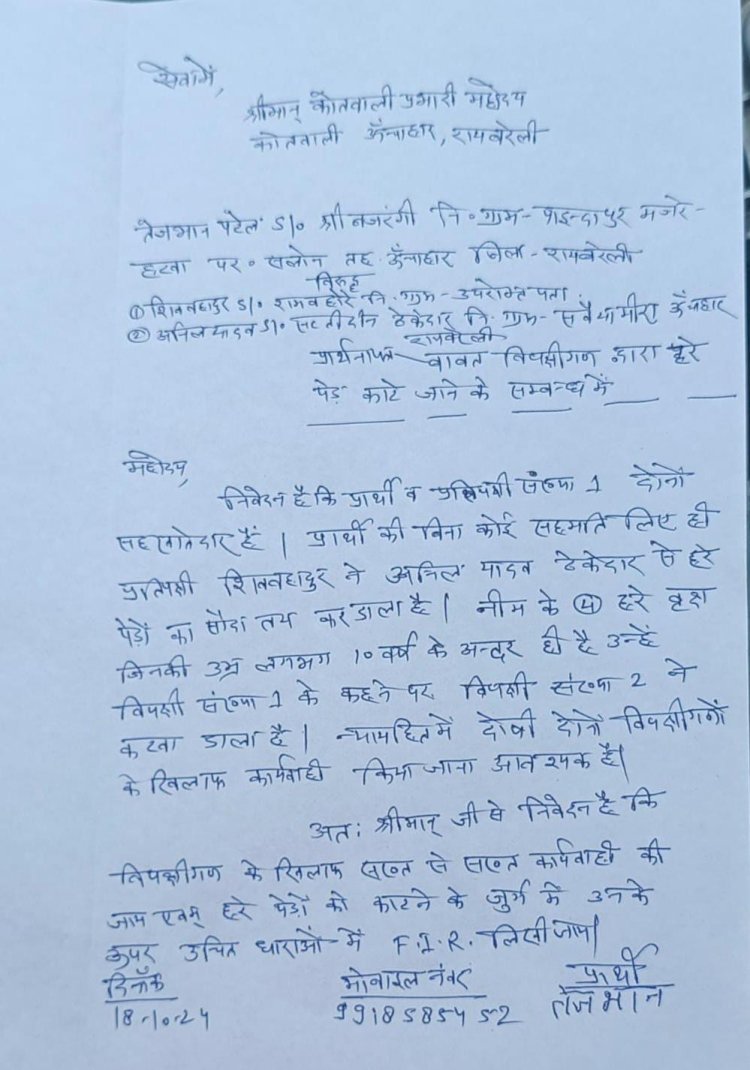 सेवामें,
श्रीमान् कोतवाली प्रभारी महोदय
कोतवाली ऊँचाहार, रायबरेली
तेजभान पटेल S/o श्री बजरंगी नि० ग्राम- मजरे-
हटवा पर० सलोन तह ऊँचाहार जिला- रायबरेली
विरुद्ध
① शिवबहादुर S/o रामबहोरे नि. ग्राम- उपरोक्त पता
② अनिल यादव S/o सत्तीदीन ठेकेदार नि. ग्राम- सवैयामीरा ऊँचाहार
रायबरेली
प्रार्थनापत्र बावत विपक्षीगण द्वारा हरे
पेड़ काटे जाने के सम्बन्ध में
महोदय,
निवेदन है कि प्रार्थी व प्रतिपक्षी संख्या 1 दोनों
सहखातेदार हैं | प्रार्थी की बिना कोई सहमति लिए ही
प्रतिपक्षी शिवबहादुर ने अनिल यादव ठेकेदार से हरे
पेड़ों का सौदा तय कर डाला है | नीम के ④ हरे वृक्ष
जिनकी उम्र लगभग 10 वर्ष के अन्दर ही है उन्हें
विपक्षी संख्या 1 के कहने पर विपक्षी संख्या 2 ने
कटवा डाला है | न्यायहित में दोषी दोनों विपक्षीगणों
के खिलाफ कार्यवाही किया जाना आवश्यक है|
अतः श्रीमान् जी से निवेदन है कि
विपक्षीगण के खिलाफ सख्त से सख्त कार्यवाही की
जाय एवम् हरे पेड़ों को काटने के जुर्म में उनके
ऊपर उचित धाराओं में F.I.R. लिखी जाय|
दिनाँक मोबाइल नंबर प्रार्थी
18-10-24 9918585452 तेजभान